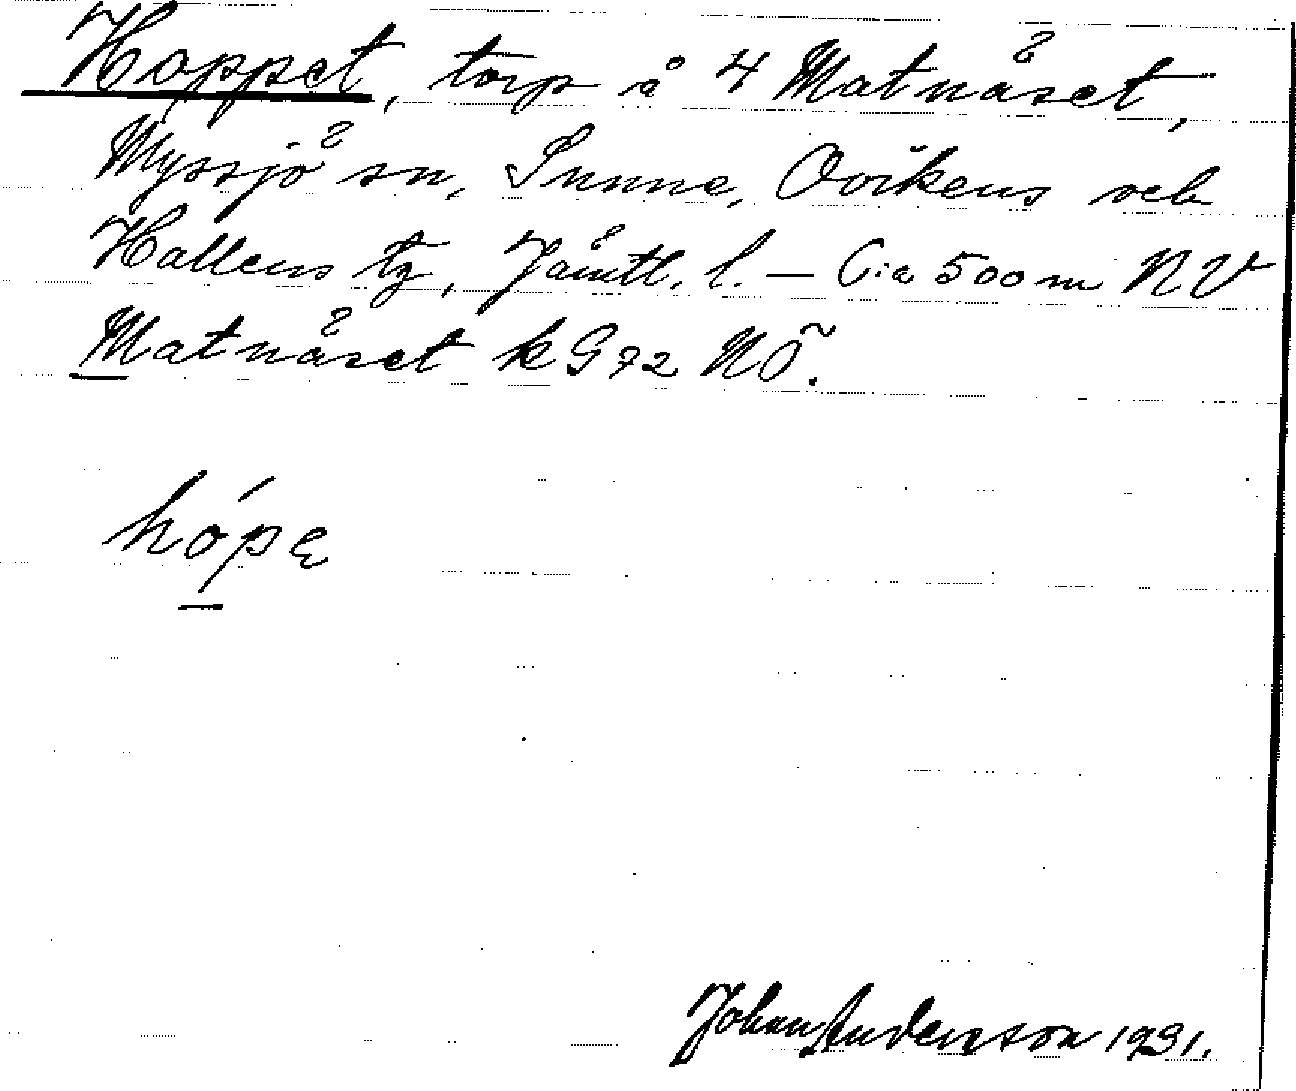 Hoppet, torp å 4 Matnäset,
Myssjö sn, Sunne, Ovikens och
Hallens tg, Jämtl. l. – C:a 500 m NV
Matnäset k G 72 NÖ.
hópe
Johan Anderson 1931.